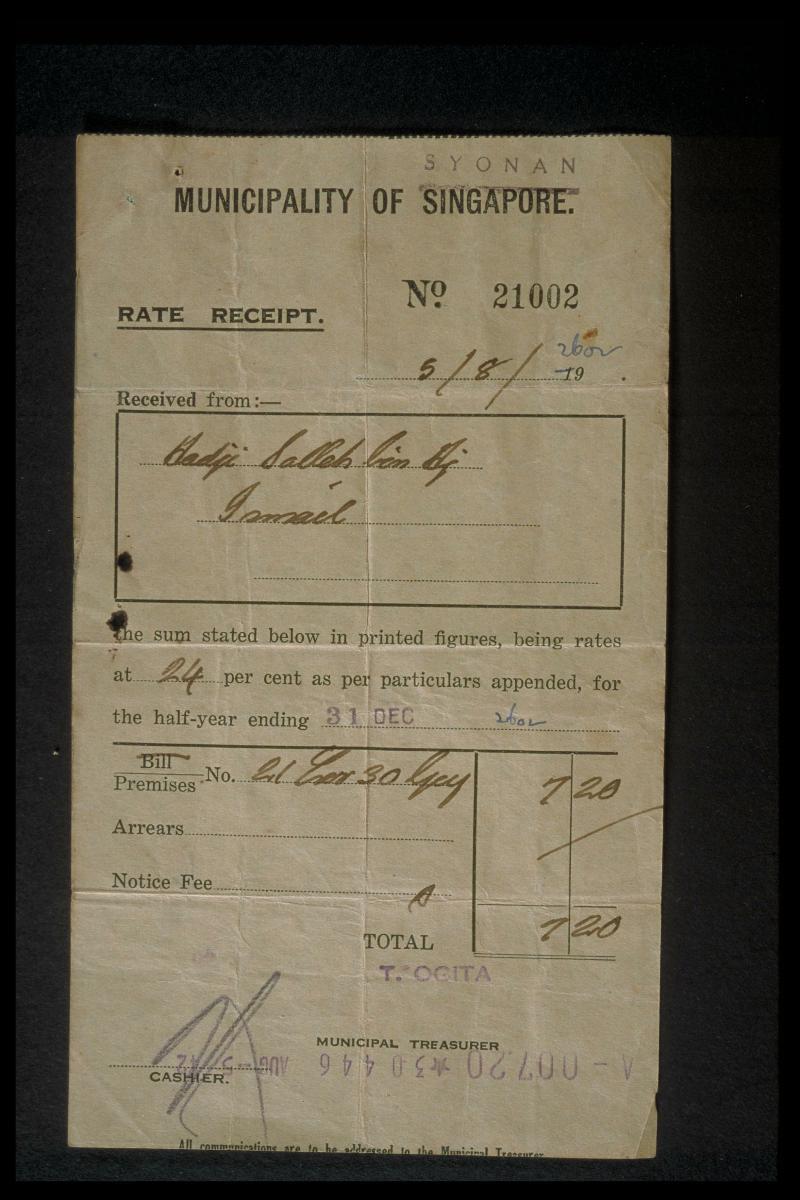 SYONAN
MUNICIPALITY OF SINGAPORE.
Nº 21002
RATE RECEIPT.
5/8/ 2602
19 .
Received from:—
Hadji Salleh bin Hj
Ismail
the sum stated below in printed figures, being rates
at 24 per cent as per particulars appended, for
the half-year ending 31 DEC 2602
Bill
Premises No. 21 Lor 30 Gey 7 20
Arrears
Notice Fee
TOTAL 7 20
T. OGITA
MUNICIPAL TREASURER
A-00720 ★30446 AUG-5 42
CASHIER.
All communications are to be addressed to the Municipal Treasurer